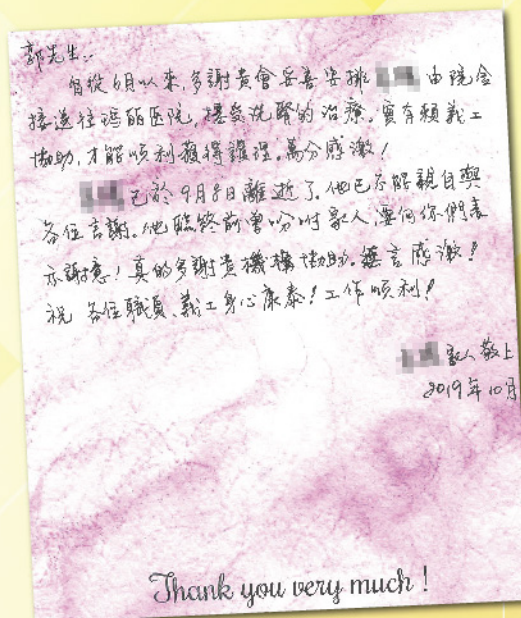 郭先生:
自從6月以來,多謝貴會妥善安排 由院舍
接送往瑪麗医院,接受洗腎的治療。實有賴義工
協助,才能順利獲得護理。萬分感激!
已於9月8日離逝了。他已不能親自與
各位言謝。他臨終前曾吩咐家人,要向你們表
示謝意!真的多謝貴機構協助。無言感激!
祝 各位職員、義工身心康泰!工作順利!
家人敬上
2019年10月
Thank you very much !